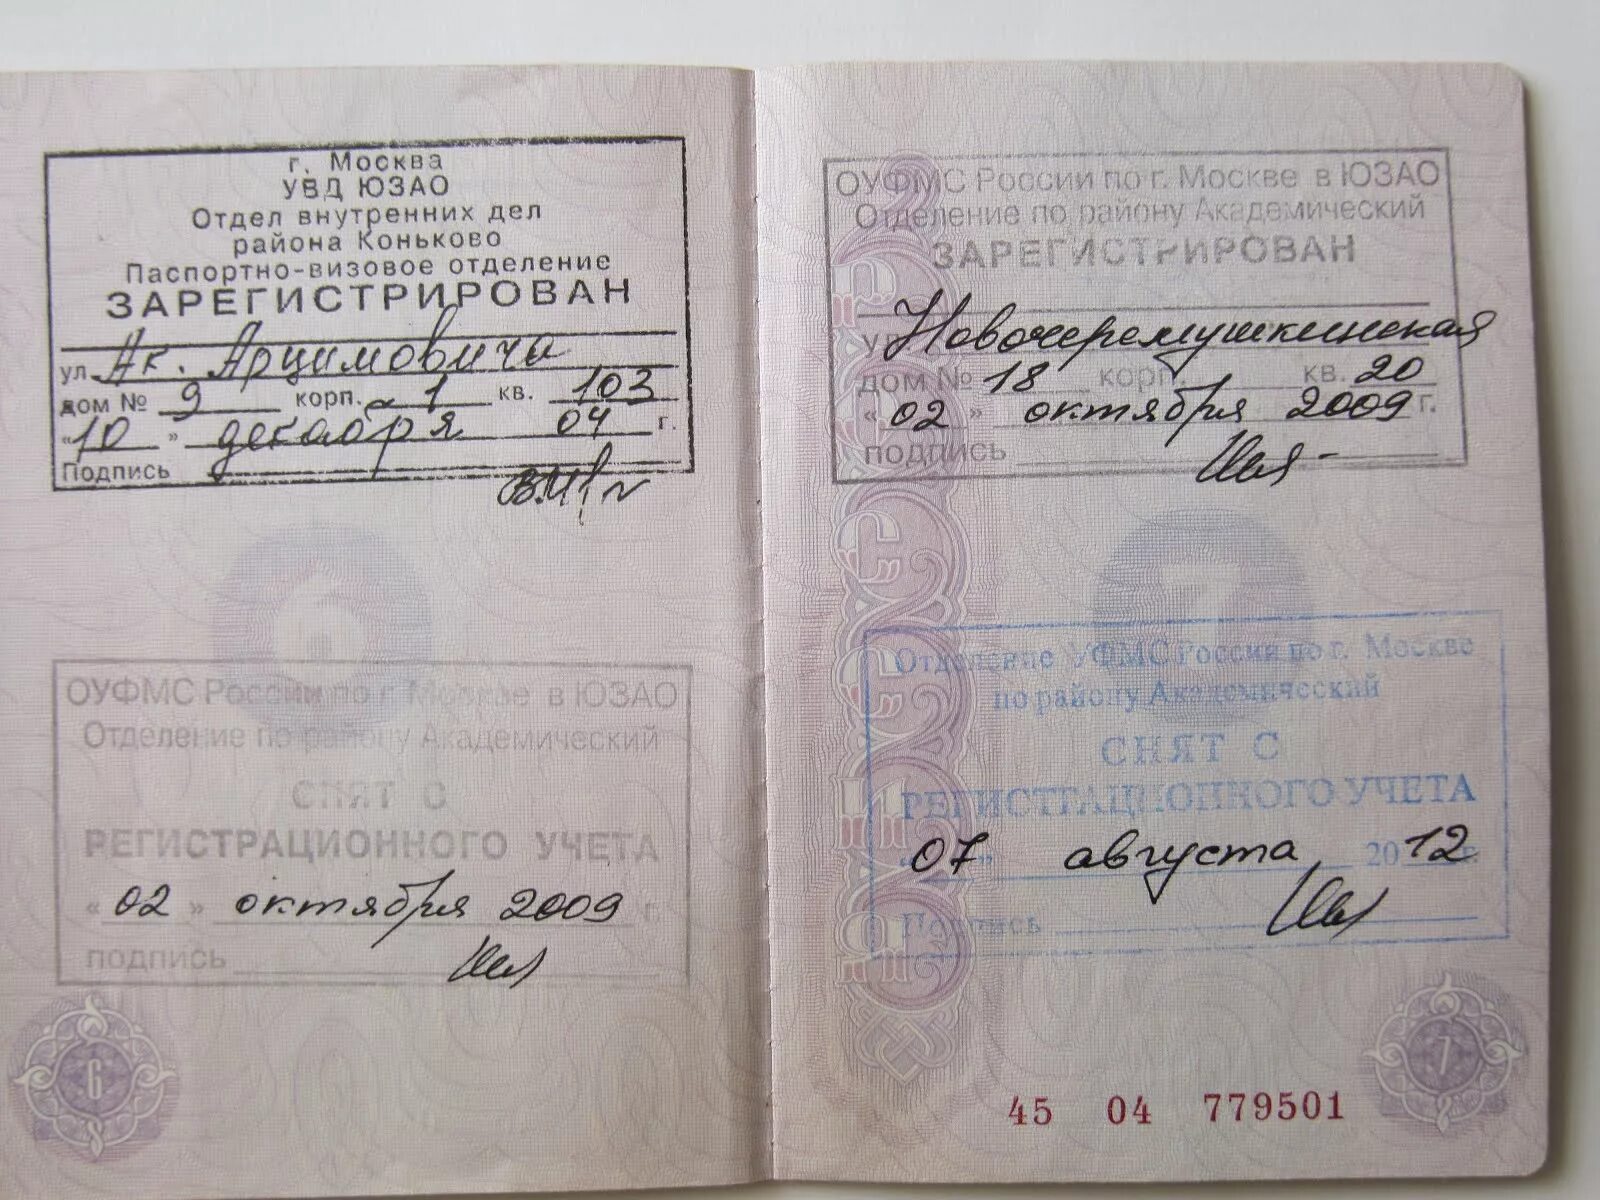 г. Москва
УВД ЮЗАО
Отдел внутренних дел
района Коньково
Паспортно-визовое отделение
ЗАРЕГИСТРИРОВАН
ул. Ак. Арцимовича
дом № 9 корп. 1 кв. 103
"10" декабря 04 г.
Подпись
6
ОУФМС России по г. Москве в ЮЗАО
Отделение по району Академический
СНЯТ С
РЕГИСТРАЦИОННОГО УЧЕТА
"02" октября 2009 г.
подпись
6
ОУФМС России по г. Москве в ЮЗАО
Отделение по району Академический
ЗАРЕГИСТРИРОВАН
ул Новочеремушкинская
дом № 18 корп. кв. 20
"02" октября 2009 г.
подпись
7
Отделение УФМС России по г. Москве
по району Академический
СНЯТ С
РЕГИСТРАЦИОННОГО УЧЕТА
"07" августа 2012 г.
Подпись
7
45 04 779501